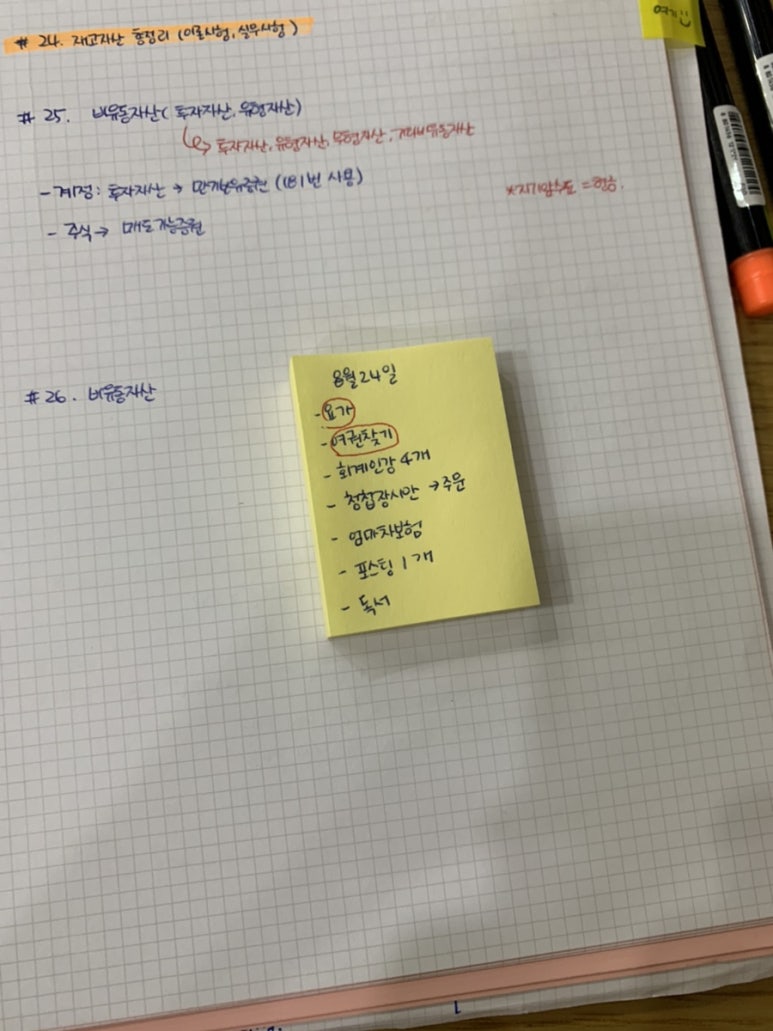 여기
# 24. 재고자산 총정리 (이론시험, 실무시험)
# 25. 비유동자산( 투자자산, 유형자산)
↳ 투자자산, 유형자산, 무형자산, 기타비유동자산
- 계정: 투자자산 → 만기보유증권 (181번 사용)
*자기앞수표 = 현금.
- 주식 → 매도가능증권
# 26. 비유동자산
8월 24일
- 요가
- 여권찾기
- 회계인강 4개
- 청첩장시안 → 주문
- 엄마차보험
- 포스팅 1개
- 독서